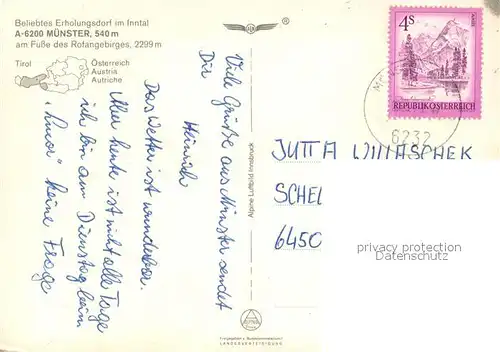 Beliebtes Erholungsdorf im Inntal
A-6200 MÜNSTER, 540 m
am Fuße des Rofangebirges, 2299 m
Tirol
Österreich
Austria
Autriche
®
4S
REPUBLIK ÖSTERREICH
6232
Viele Grüße aus Münster sendet
Dir
Heinrich
Das Wetter ist wunderbar.
Aber heute ist nicht alle Tage
ich bin am Dienstag beim
keine Frage
Luftbild Innsbruck
JUTTA
SCHEL
6450
privacy protection
veryimportantlot.com
LANDESVERTEIDIGUNG